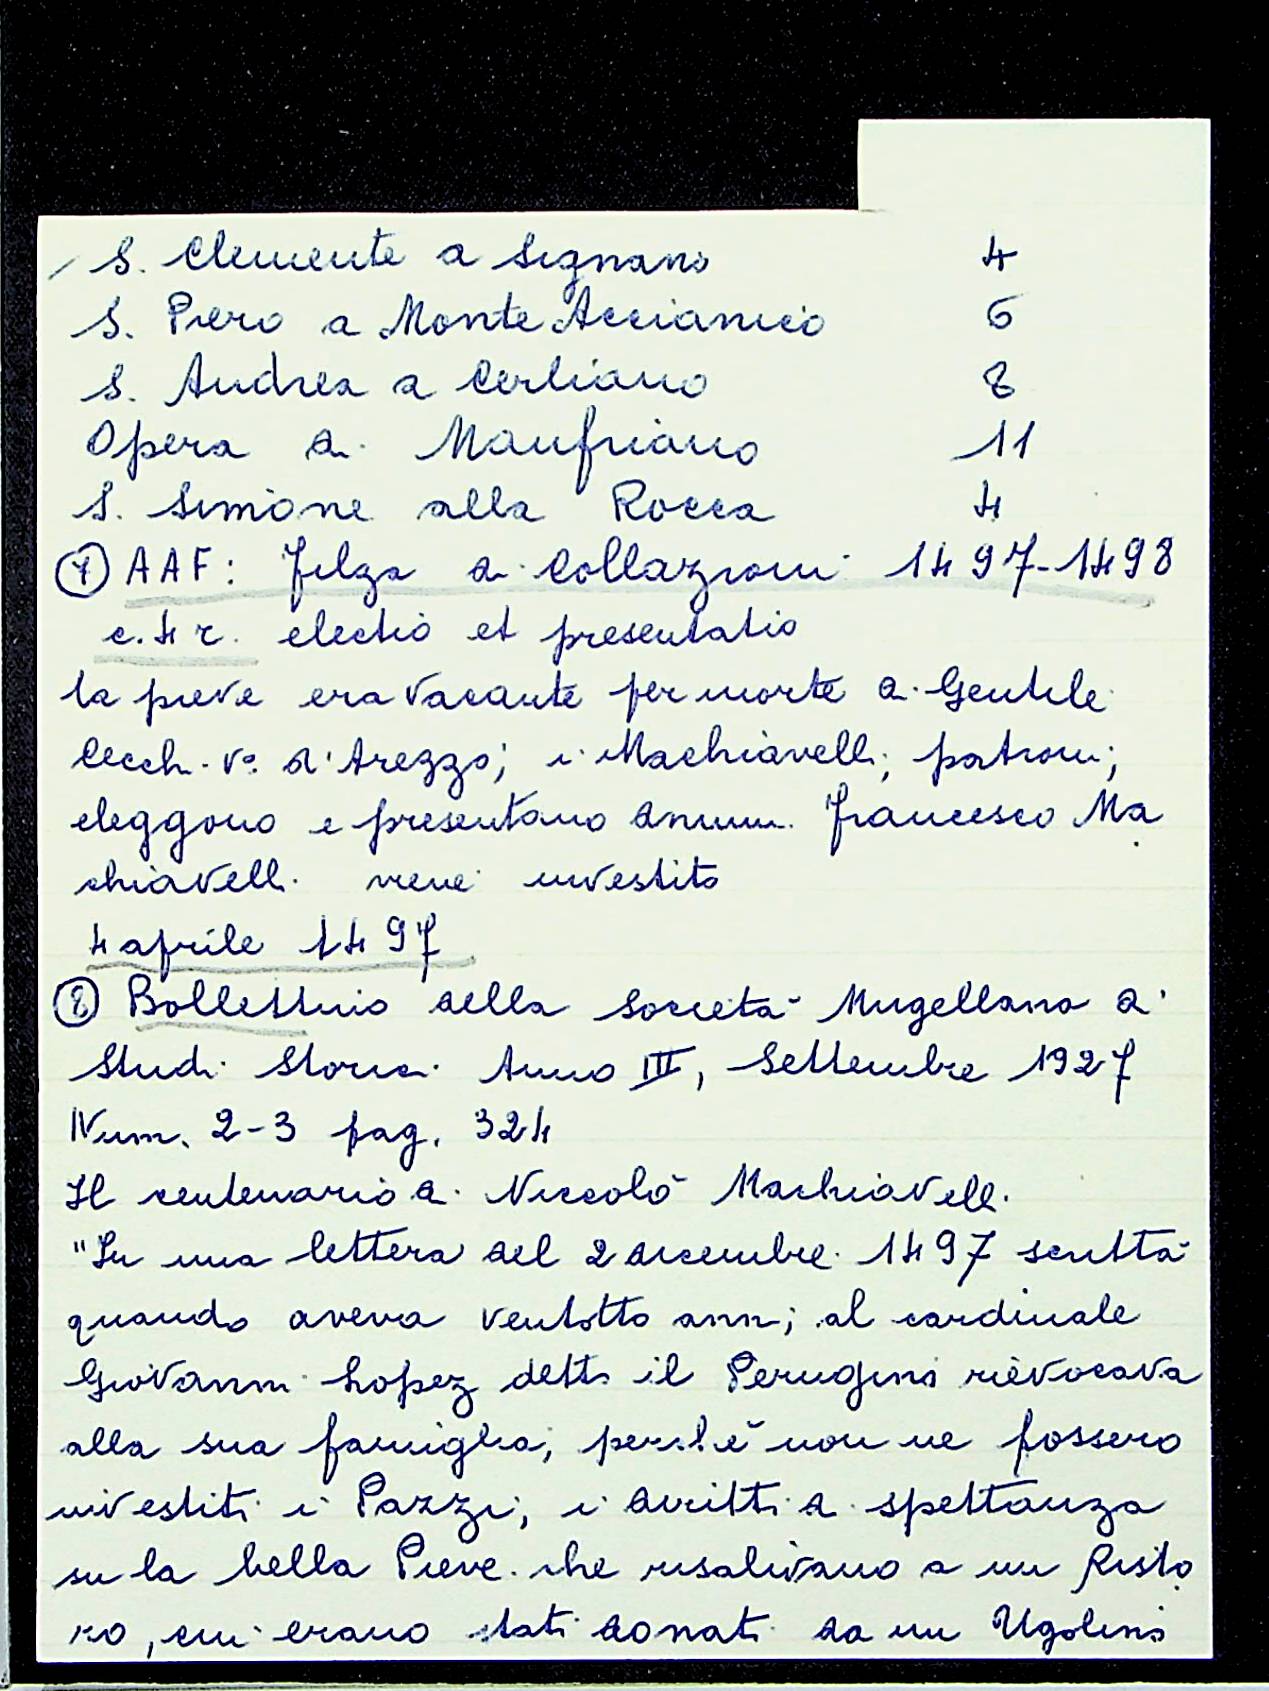 S. Clemente a Signano 4
S. Piero a Monte Accianico 6
S. Andrea a Cerliano 8
Opera di Manfriano 11
S. Simone alla Rocca 4
⑦ AAF: Filza di Collazioni 1497-1498
c. 4 r. electio et presentatio
la pieve era vacante per morte di Gentile
Cecchi v.o d'Arezzo; i Machiavelli, patroni,
eleggono e presentano Francesco Ma
chiavelli viene investito
4 aprile 1497
⑧ Bollettino della Società Mugellana di
Studi Storici Anno III, Settembre 1927
Num. 2-3 pag. 324
Il centenario di Niccolò Machiavelli
"In una lettera del 2 dicembre 1497 scritta
quando aveva ventotto anni, al cardinale
Giovanni Lopez detto il Perugino rievocava
alla sua famiglia, perchè non ne fossero
investiti i Pazzi, i diritti di spettanza
su la bella Pieve che risalivano a un Risto
ro, cui erano stati donati da un Ugolino